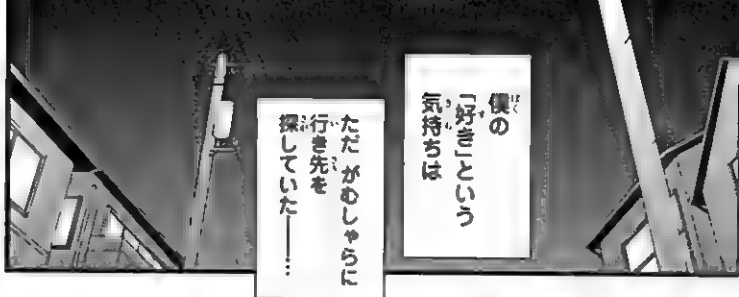 僕の
「好き」という
気持ちは
ただ がむしゃらに
行き先を
探していた──…